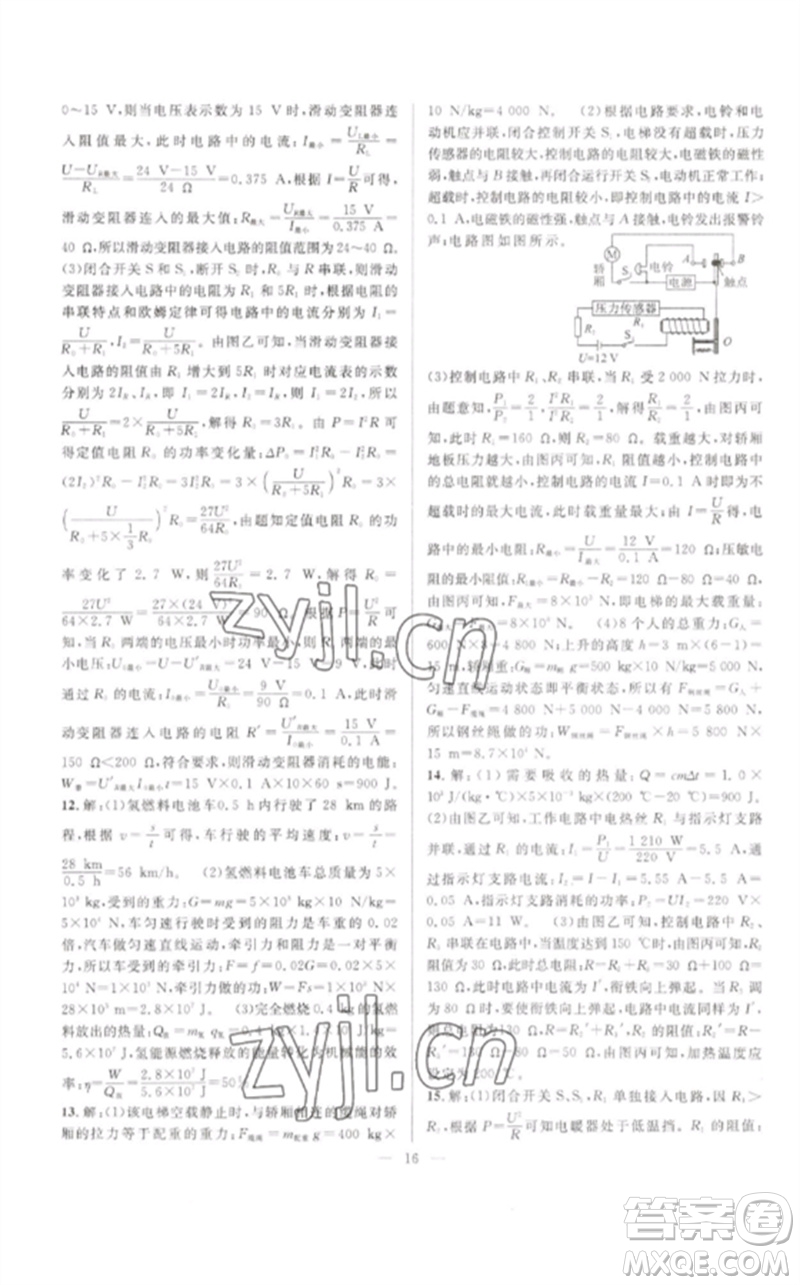 0～15 V,则当电压表示数为 15 V时,滑动变阻器连
入阻值最大,此时电路中的电流:I最小=U_L最小/R_L=
(U-U_R最大)/R_L=(24 V-15 V)/24 Ω=0.375 A,根据 I=U/R可得,
滑动变阻器连入的最大值:R最大=U_R最大/I最小=15 V/0.375 A=
40 Ω,所以滑动变阻器接入电路的阻值范围为24～40 Ω.
(3)闭合开关 S 和 S₁,断开 S₂ 时,R₀ 与 R 串联,则滑动
变阻器接入电路的阻值为 R₁ 和 5R₁ 时,根据电阻的
串联特点和欧姆定律可得电路中的电流分别为 I₁=
U/(R₀+R₁),I₂=U/(R₀+5R₁).由图乙可知,当滑动变阻器接
入电路的阻值由 R₁ 增大到 5R₁ 时对应电流表的示数
所以
U/(R₀+R₁)=2×U/(R₀+5R₁),解得 R₀=3R₁.由 P=I²R 可
得定值电阻 R₀ 的功率变化量:ΔP₀=I₁²R₀-I₂²R₀=
(2I₂)²R₀-I₂²R₀=3I₂²R₀=3×(U/(R₀+5R₁))²R₀=3×
(U/(R₀+5×1/3R₀))²R₀=27U²/64R₀,由题知定值电阻 R₀ 的功
率变化了 2.7 W,则27U²/64R₀=2.7 W,解得 R₀=
27U²/(64×2.7 W)=27×(24 V)²/(64×2.7 W)=90 Ω.根据 P=U²/R可
知,当 R₀ 两端的电压最小时功率最小,则 R₀ 两端的最
小电压:=U-U_R最大=24 V-15 V=9 V,此时
通过 R₀ 的电流:=9 V/90 Ω=0.1 A,此时滑
动变阻器连入电路的电阻 R′=U′_R最大/I最小=15 V/0.1 A=
150 Ω<200 Ω,符合要求,则滑动变阻器消耗的电能:
t=15 V×0.1 A×10×60 s=900 J.
12.解:(1)氢燃料电池车0.5 h行驶了 28 km的路
程,根据 v=s/t可得,车行驶的平均速度:v=s/t=
28 km/0.5 h=56 km/h. (2)氢燃料电池车总质量为 5×
10³ kg,车受到的重力:G=mg=5×10³ kg×10 N/kg=
5×10⁴ N,车匀速行驶时受到的阻力是车重的 0.02
倍,汽车做匀速直线运动,牵引力和阻力是一对平衡
力,车受到的牵引力:F=f=0.02G=0.02×5×10⁴ N=
1×10³ N,牵引力做的功:W=Fs=1×10³ N×
28×10³ m=2.8×10⁷ J. (3)完全燃烧0.4 kg的氢燃
料放出的热量:
5.6×10⁷ J,氢能源燃烧释放的能量转化为机械能的效
率:η=W/Q放=2.8×10⁷ J/5.6×10⁷ J=50%.
13.解:(1)该电梯空载静止时,与轿厢相连的缆绳对轿
厢的拉力等于配重的重力:F缆绳=m配重g=400 kg×
10 N/kg=4 000 N. (2)根据电路要求,电铃和电
动机应并联,闭合控制开关 S₁,电梯没有超载时,压力
传感器的电阻较大,控制电路的电阻较大,电磁铁的磁性
弱,与 B 接触,再闭合运行开关 S₂,电动机正常工作;
超载时,控制电路的电阻较小,即控制电路中的电流 I>
0.1 A,电磁铁的磁性强,触点与 A 接触,电铃发出报警铃
声;电路图如图所示.
M
轿厢
S₂
电铃
A
B
电源
触点
压力传感器
R₁
R₂
S₁
O
U=12 V
(3)控制电路中 R₁、R₂ 串联,当 R₂ 受 2 000 N 拉力时,
由题意知,P₂/P₁=I²R₂/I²R₁=2/1,解得R₂/R₁=2/1,由图丙可
知,此时 R₂=160 Ω,则 R₁=80 Ω.载重量越大,对轿厢
地板压力越大,由图丙可知,R₂ 阻值越小,控制电路中
的总电阻就越小,控制电路的电流 I=0.1 A 时为不
超载时的最大电流,此时载重量最大,由 I=U/R得,电
路中的最小电阻:R最小=U/I最大=12 V/0.1 A=120 Ω;压敏电
阻的最小阻值:=120 Ω-80 Ω=40 Ω,
由图丙可知,F最大=8×10³ N,即电梯的最大载重量:
(4)8个人的总重力:G人=
600 N×8=4 800 N;上升的高度:h=3 m×(6-1)=
15 m,
匀速直线运动状态即平衡状态,所以有 F=G人+
所以钢丝绳做的功:
15 m=8.7×10⁴ J.
14.解:(1)需要吸收的热量:Q=cmΔt=1.0×
10³ J/(kg·℃)×5×10⁻² kg×(200 ℃-20 ℃)=9×10³ J.
(2)由图乙可知,工作电路中电热丝 R₁ 与指示灯支路
并联,通过 R₁ 的电流:I₁=P₁/U=1 210 W/220 V=5.5 A,
0.05 A,指示灯支路消耗的电功率:
0.05 A=11 W. (3)由图乙可知,控制电路中 R₂、
R₃ 串联在电路中,当温度达到 150 ℃时,由图丙可知,R₂
阻值为 50 Ω,此时电路中的总电阻为 50 Ω+80 Ω=
130 Ω,由题可知,此时衔铁向上弹起.当 R₃ 调
为 80 Ω 时要使衔铁向上弹起,电路中的电流不变,
则总电阻为130 Ω,
由图丙可知,此时加热温度应
设定为200 ℃.
15.解:(1)闭合开关 S、S₁,R₁ 单独接入电路,因 R₁>
R₂,根据 P=U²/R可知电暖器处于低温挡.R₁ 的阻值:
16
zyjl.cn
zyjl.cn
答案圈
MXQE.COM